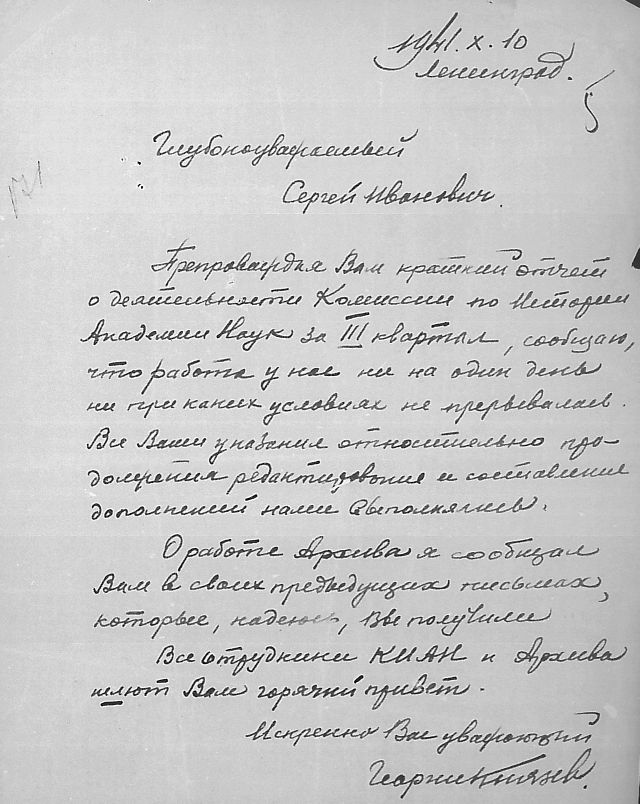 1941.X.10
Ленинград.
Глубокоуважаемый
Сергей Иванович.
171
Препровождая Вам краткий отчет
о деятельности Комиссии по Истории
Академии Наук за III квартал, сообщаю,
что работа у нас ни на один день
ни при каких условиях не прерывалась.
Все Ваши указания относительно про-
должения редактирования и составления
дополнений нами выполнялись.
О работе Архива я сообщал
Вам в своих предыдущих письмах,
которые, надеюсь, Вы получили
Все сотрудники КИАН и Архива
шлют Вам горячий привет.
Искренно Вас уважающий
Георгий Князев.